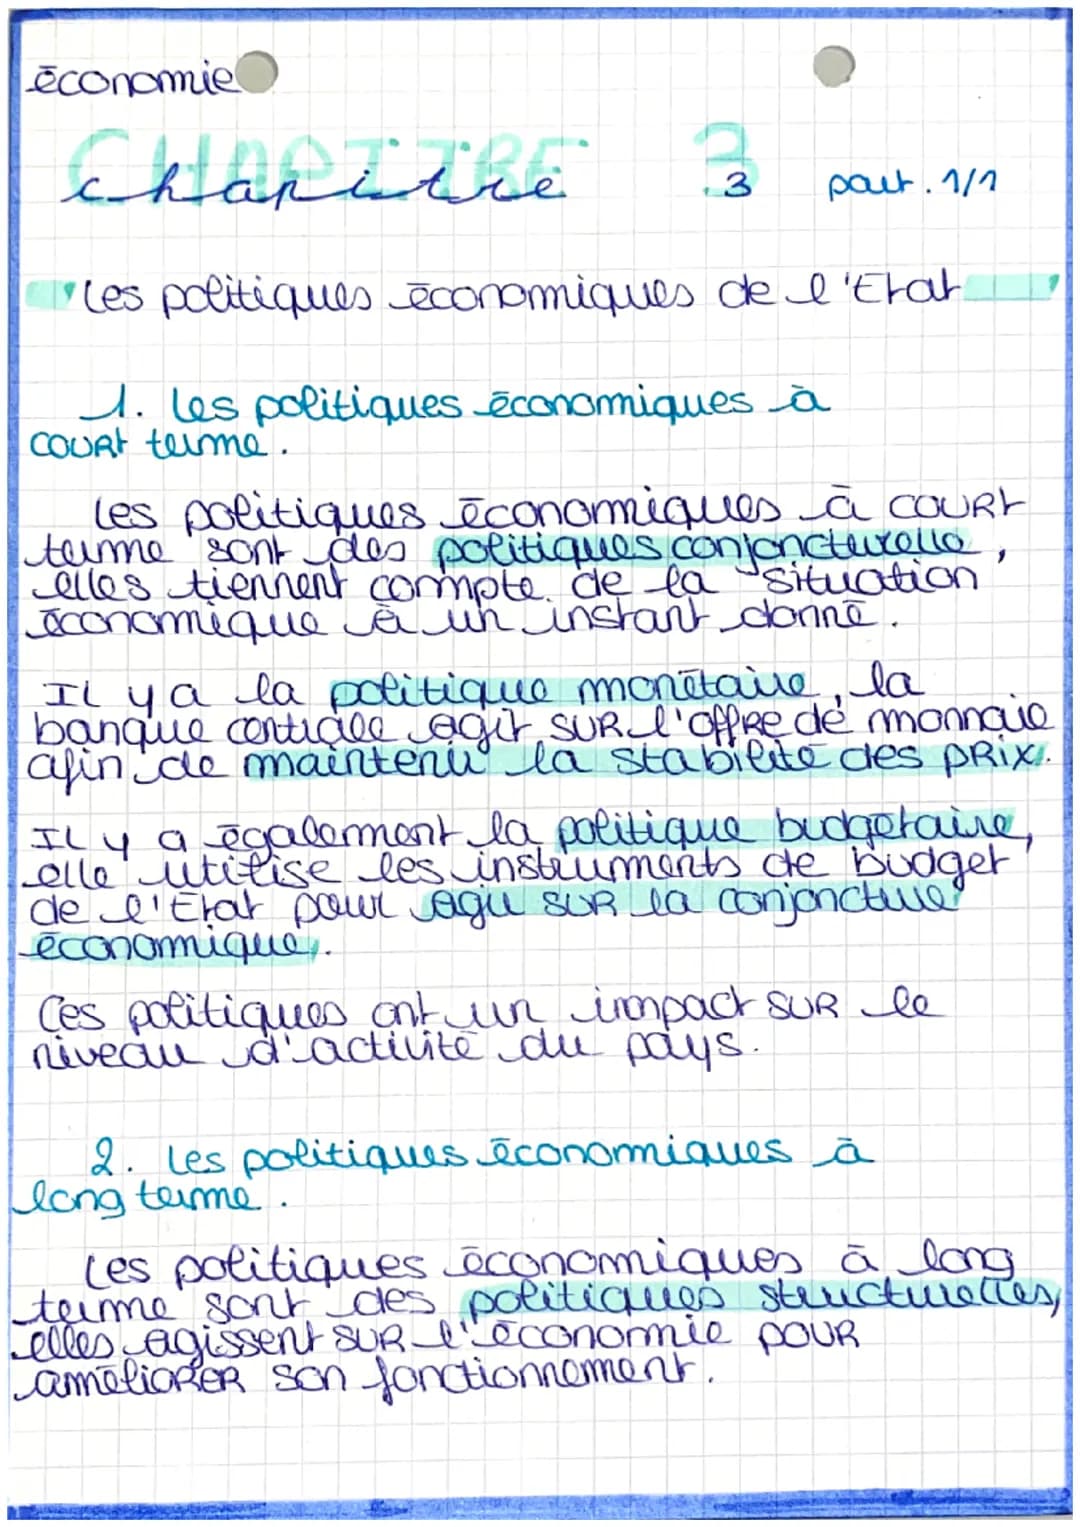 économie
CHAPITRE 3
chapitre 3 part. 1/1
" Les politiques économiques de l'Etat "
1. Les politiques économiques à
court terme.
Les politiques économiques à court
terme sont des politiques conjoncturelle,
elles tiennent compte de la situation
économique à un instant donné.
Il y a la politique monétaire, la
banque centrale agit sur l'offre de monnaie
afin de maintenir la stabilité des prix.
Il y a également la politique budgétaire,
elle utilise les instruments de budget
de l'Etat pour agir sur la conjoncture
économique.
Ces politiques ont un impact sur le
niveau d'activité du pays.
2. Les politiques économiques à
long terme.
Les politiques économiques à long
terme sont des politiques structurelles,
elles agissent sur l'économie pour
améliorer son fonctionnement.